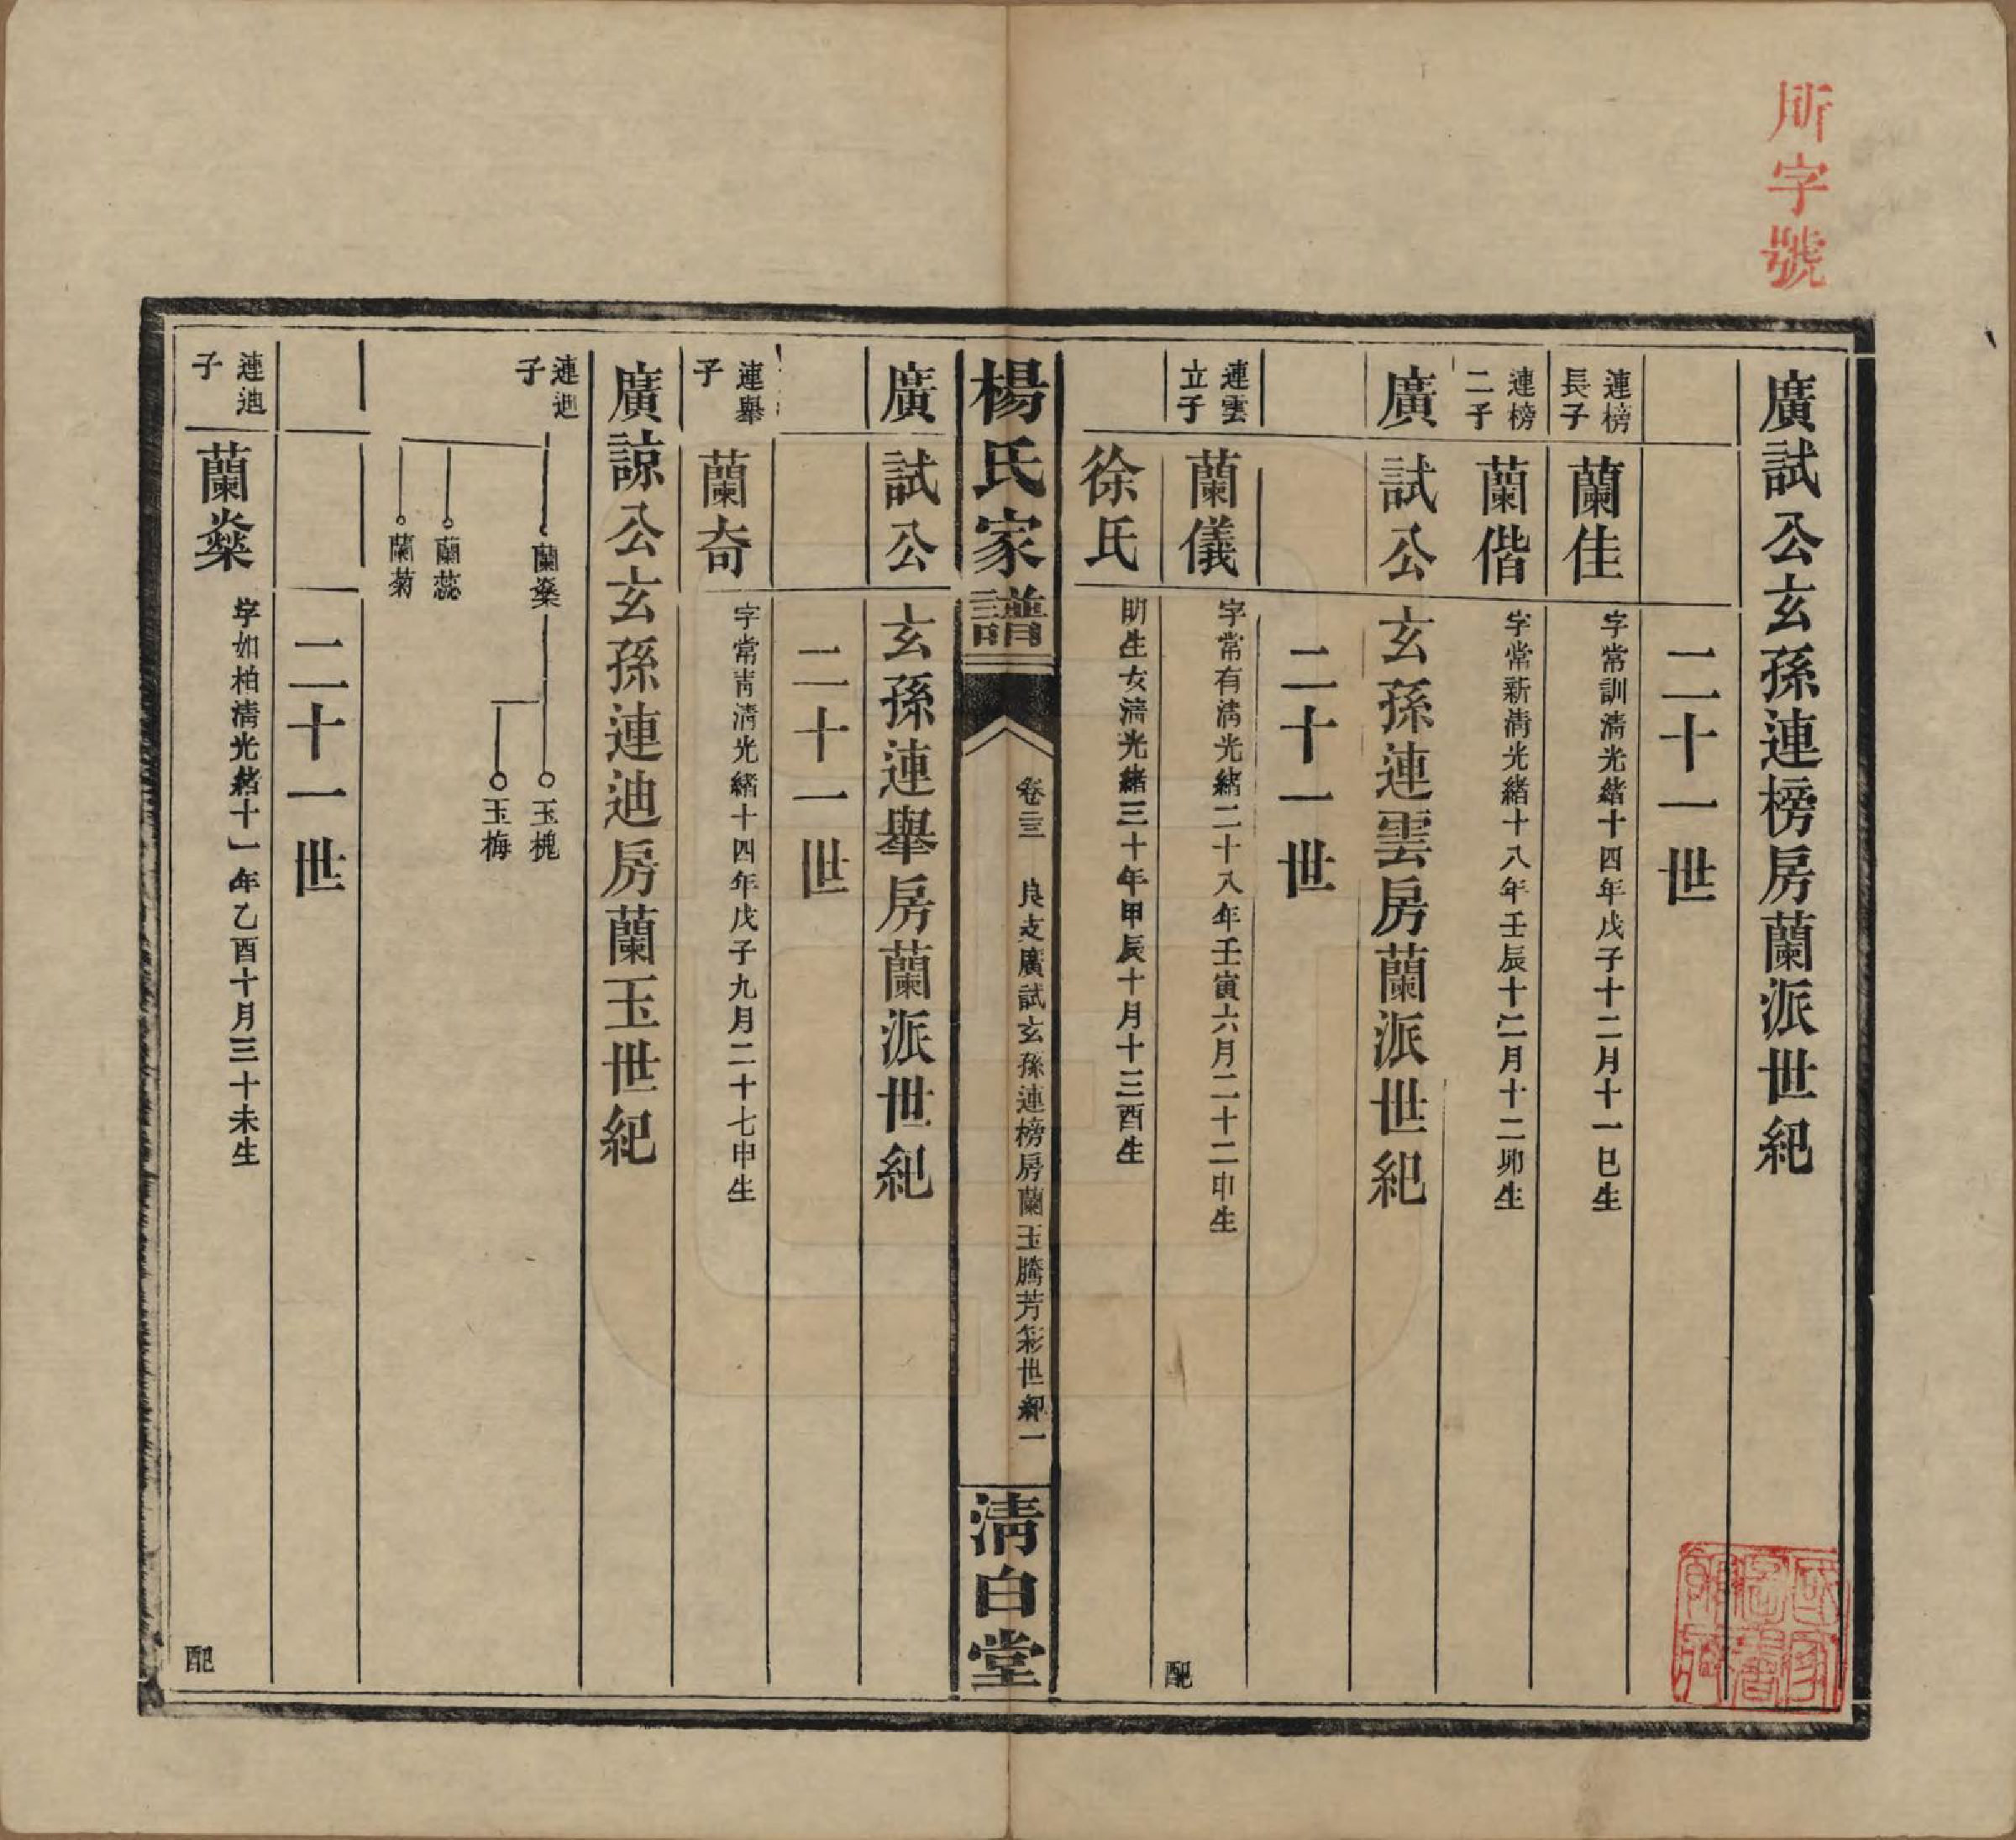 所字號
廣試公玄孫連榜房蘭派世紀
二十一世
連榜長子
蘭佳
字常訓清光緒十四年戊子十二月十一巳生
連榜二子
蘭偕
字常新清光緒十八年壬辰十二月十二卯生
廣試公玄孫連雲房蘭派世紀
二十一世
連雲立子
蘭儀
字常有清光緒二十八年壬寅六月二十二申生
配
徐氏
明生女清光緒三十年甲辰十月十三酉生
楊氏家譜
卷三
良支廣試玄孫連榜房蘭玉騰芳彩世紀一
清白堂
廣試公玄孫連舉房蘭派世紀
二十一世
連舉子
蘭奇
字常青清光緒十四年戊子九月二十七申生
廣諒公玄孫連迪房蘭玉世紀
連迪子
蘭燊
玉槐
玉梅
蘭蕊
蘭菊
二十一世
連迪子
蘭燊
字如柏清光緒十一年乙酉十月三十未生
配